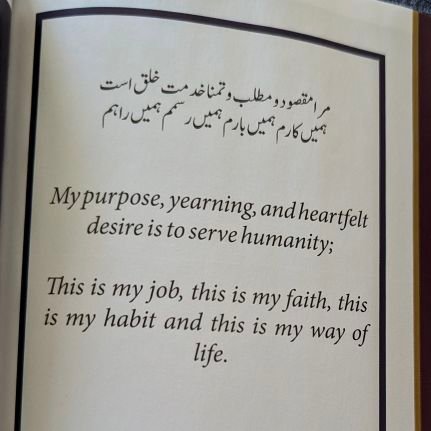 مرا مقصود و مطلب و تمنا خدمت خلق است
ہمیں کارم ہمیں بارم ہمیں رسمم ہمیں راہم
My purpose, yearning, and heartfelt
desire is to serve humanity;
This is my job, this is my faith, this
is my habit and this is my way of
life.